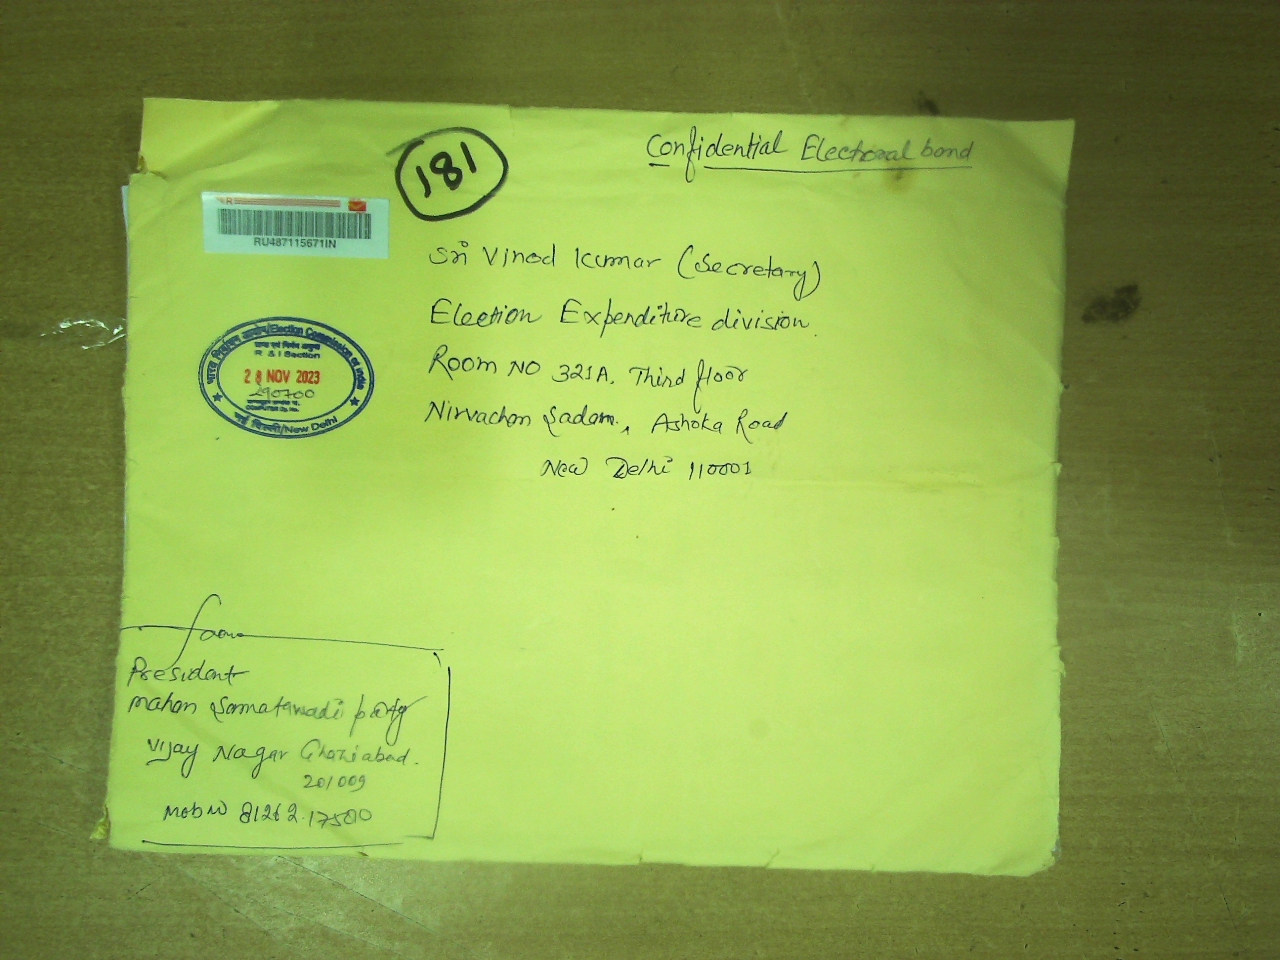 Confidential Electoral bond
181
R
RU487115671IN
Sri Vinod Kumar (Secretary)
Election Expenditure division.
Room NO 321A, Third floor
Nirvachan Sadan, Ashoka Road
New Delhi 110001
भारत निर्वाचन आयोग/Election Commission of India
R & I Section
28 NOV 2023
290700
COMPUTER Dy. No.
नई दिल्ली/New Delhi
from
President
Mahan Samatawadi party
Vijay Nagar Ghaziabad.
201009
Mob NO 81262.17500